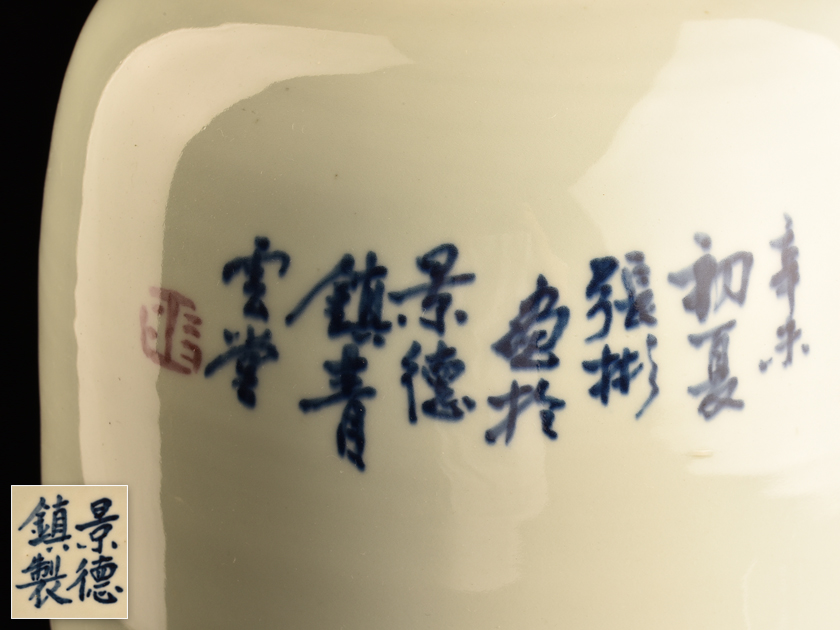 辛未
初夏
張彬
画於
景德
鎮青
雲堂
景德
鎮製